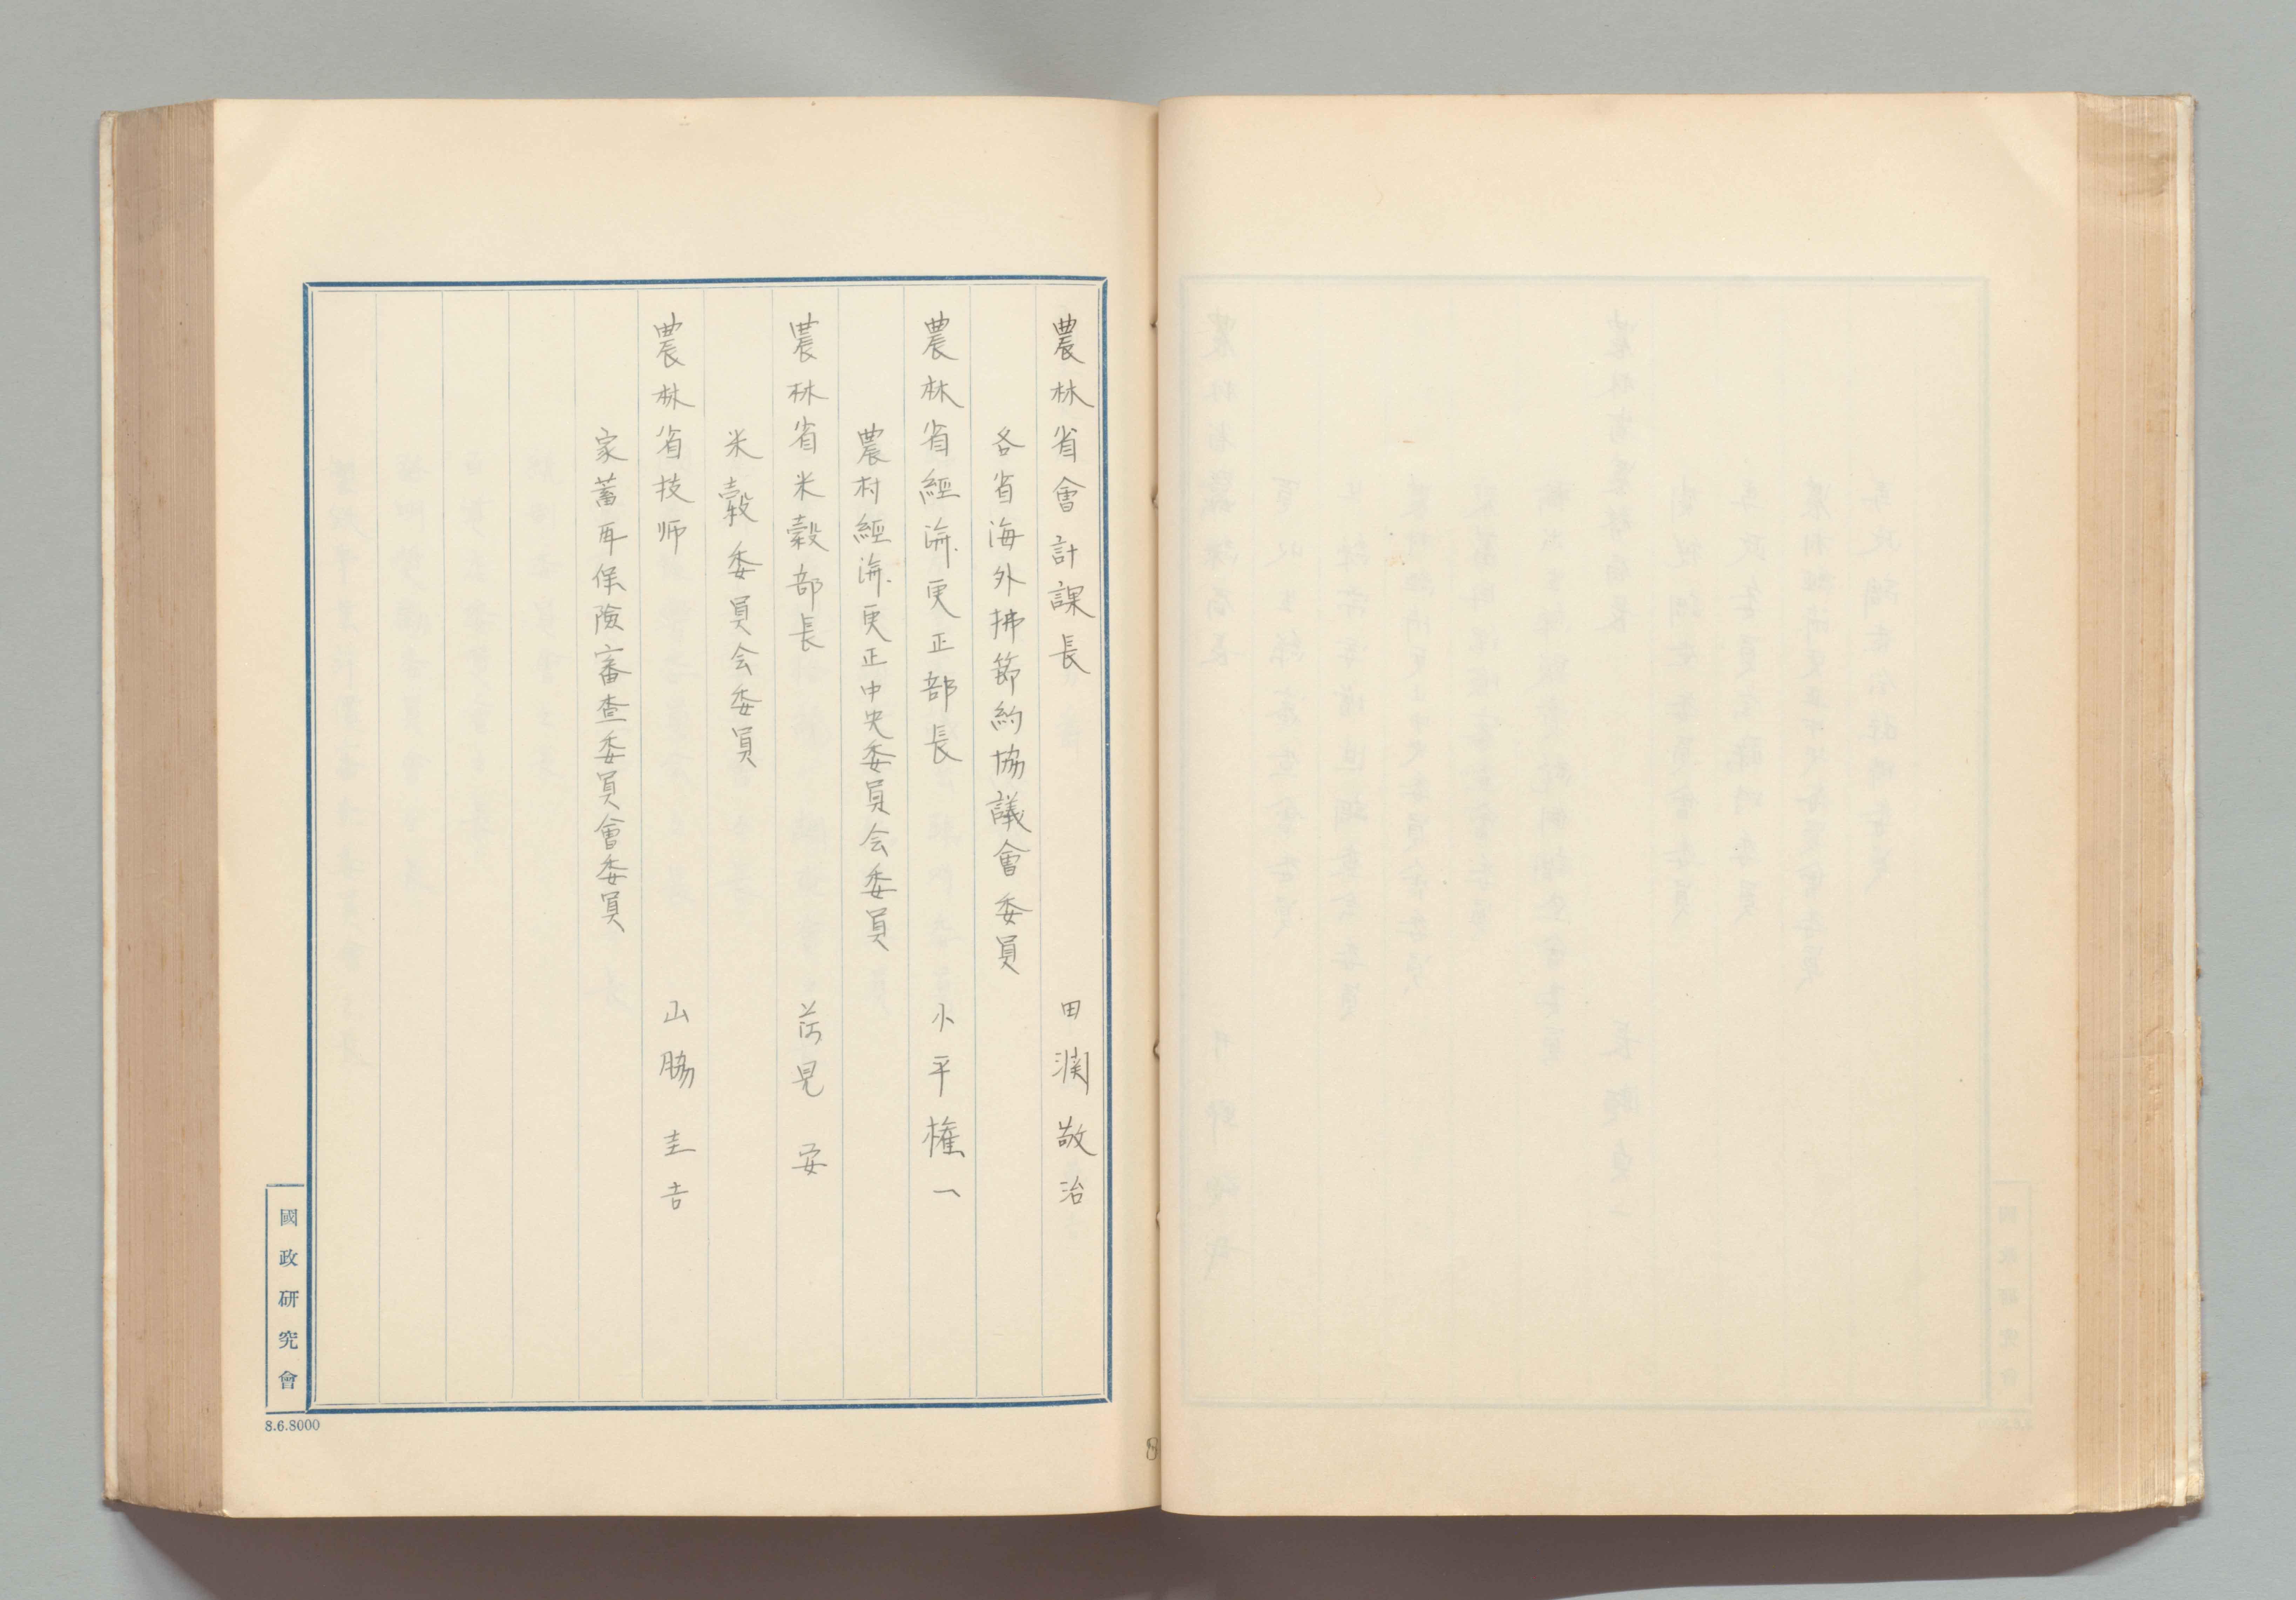 農林省會計課長 田渕敬治
各省海外拂節約協議會委員
農林省經済更正部長 小平権一
農村經済更正中央委員会委員
農林省米穀部長 荷見安
米穀委員会委員
農林省技师 山脇圭吉
家蓄再保險審查委員會委員
國政研究會
8.6.8000
8